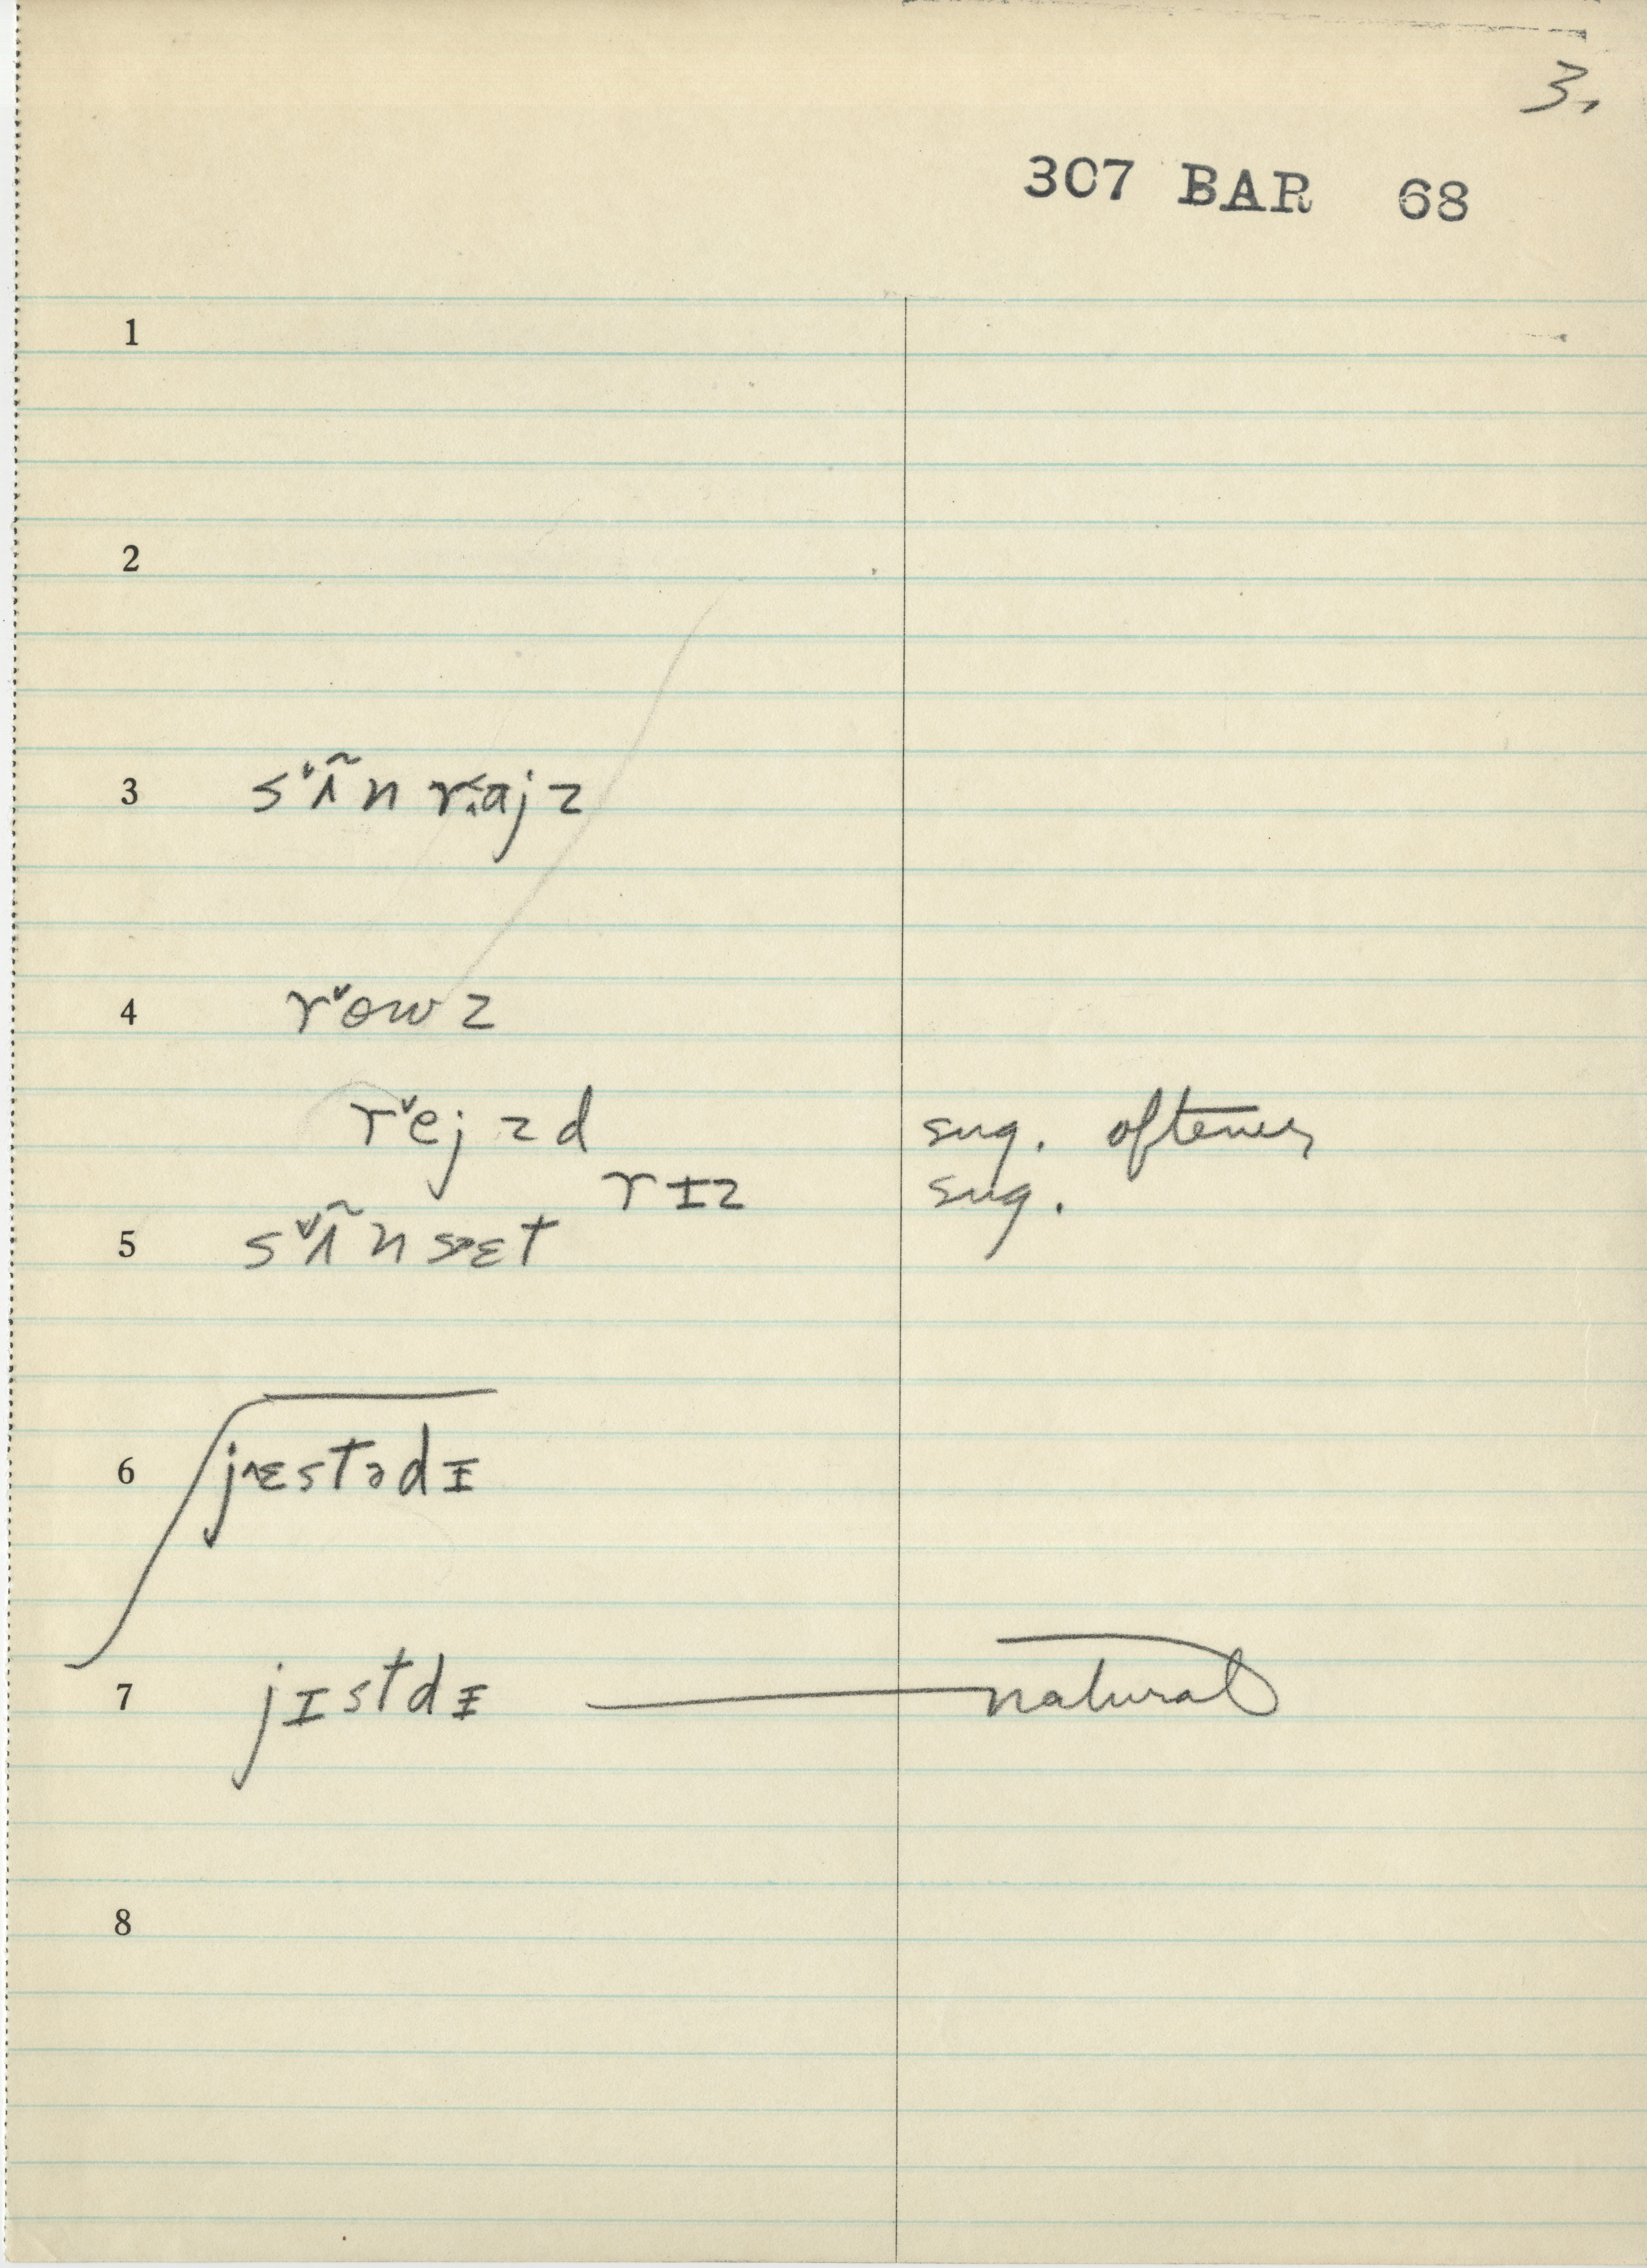 3.
307 BAR 68
1
2
3 sʌ̃n raj z
4 rɵw z
rej z d sug. oftener
rɪz sug.
5 sʌ̃n sɛt
6 jɛstədɪ
7 jɪstdɪ — natural
8